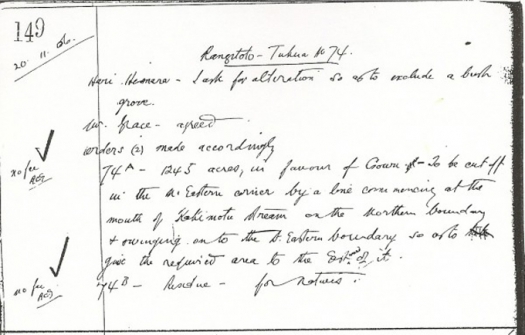 149
20. 11. 06.
Rangitoto - Tuhua No 74.
Hari Hemara - I ask for alteration so as to exclude a bush
grove.
Mr. Grace - agreed
orders (2) made accordingly
no fee
74A - 1245 acres, in favour of Crown - To be cut off
in the N. Eastern corner by a line commencing at the
mouth of Stream on the Northern boundary
& swinging on to the S. Eastern boundary so as to
give the required area to the East of it.
no fee
74B - Residue - for natives.